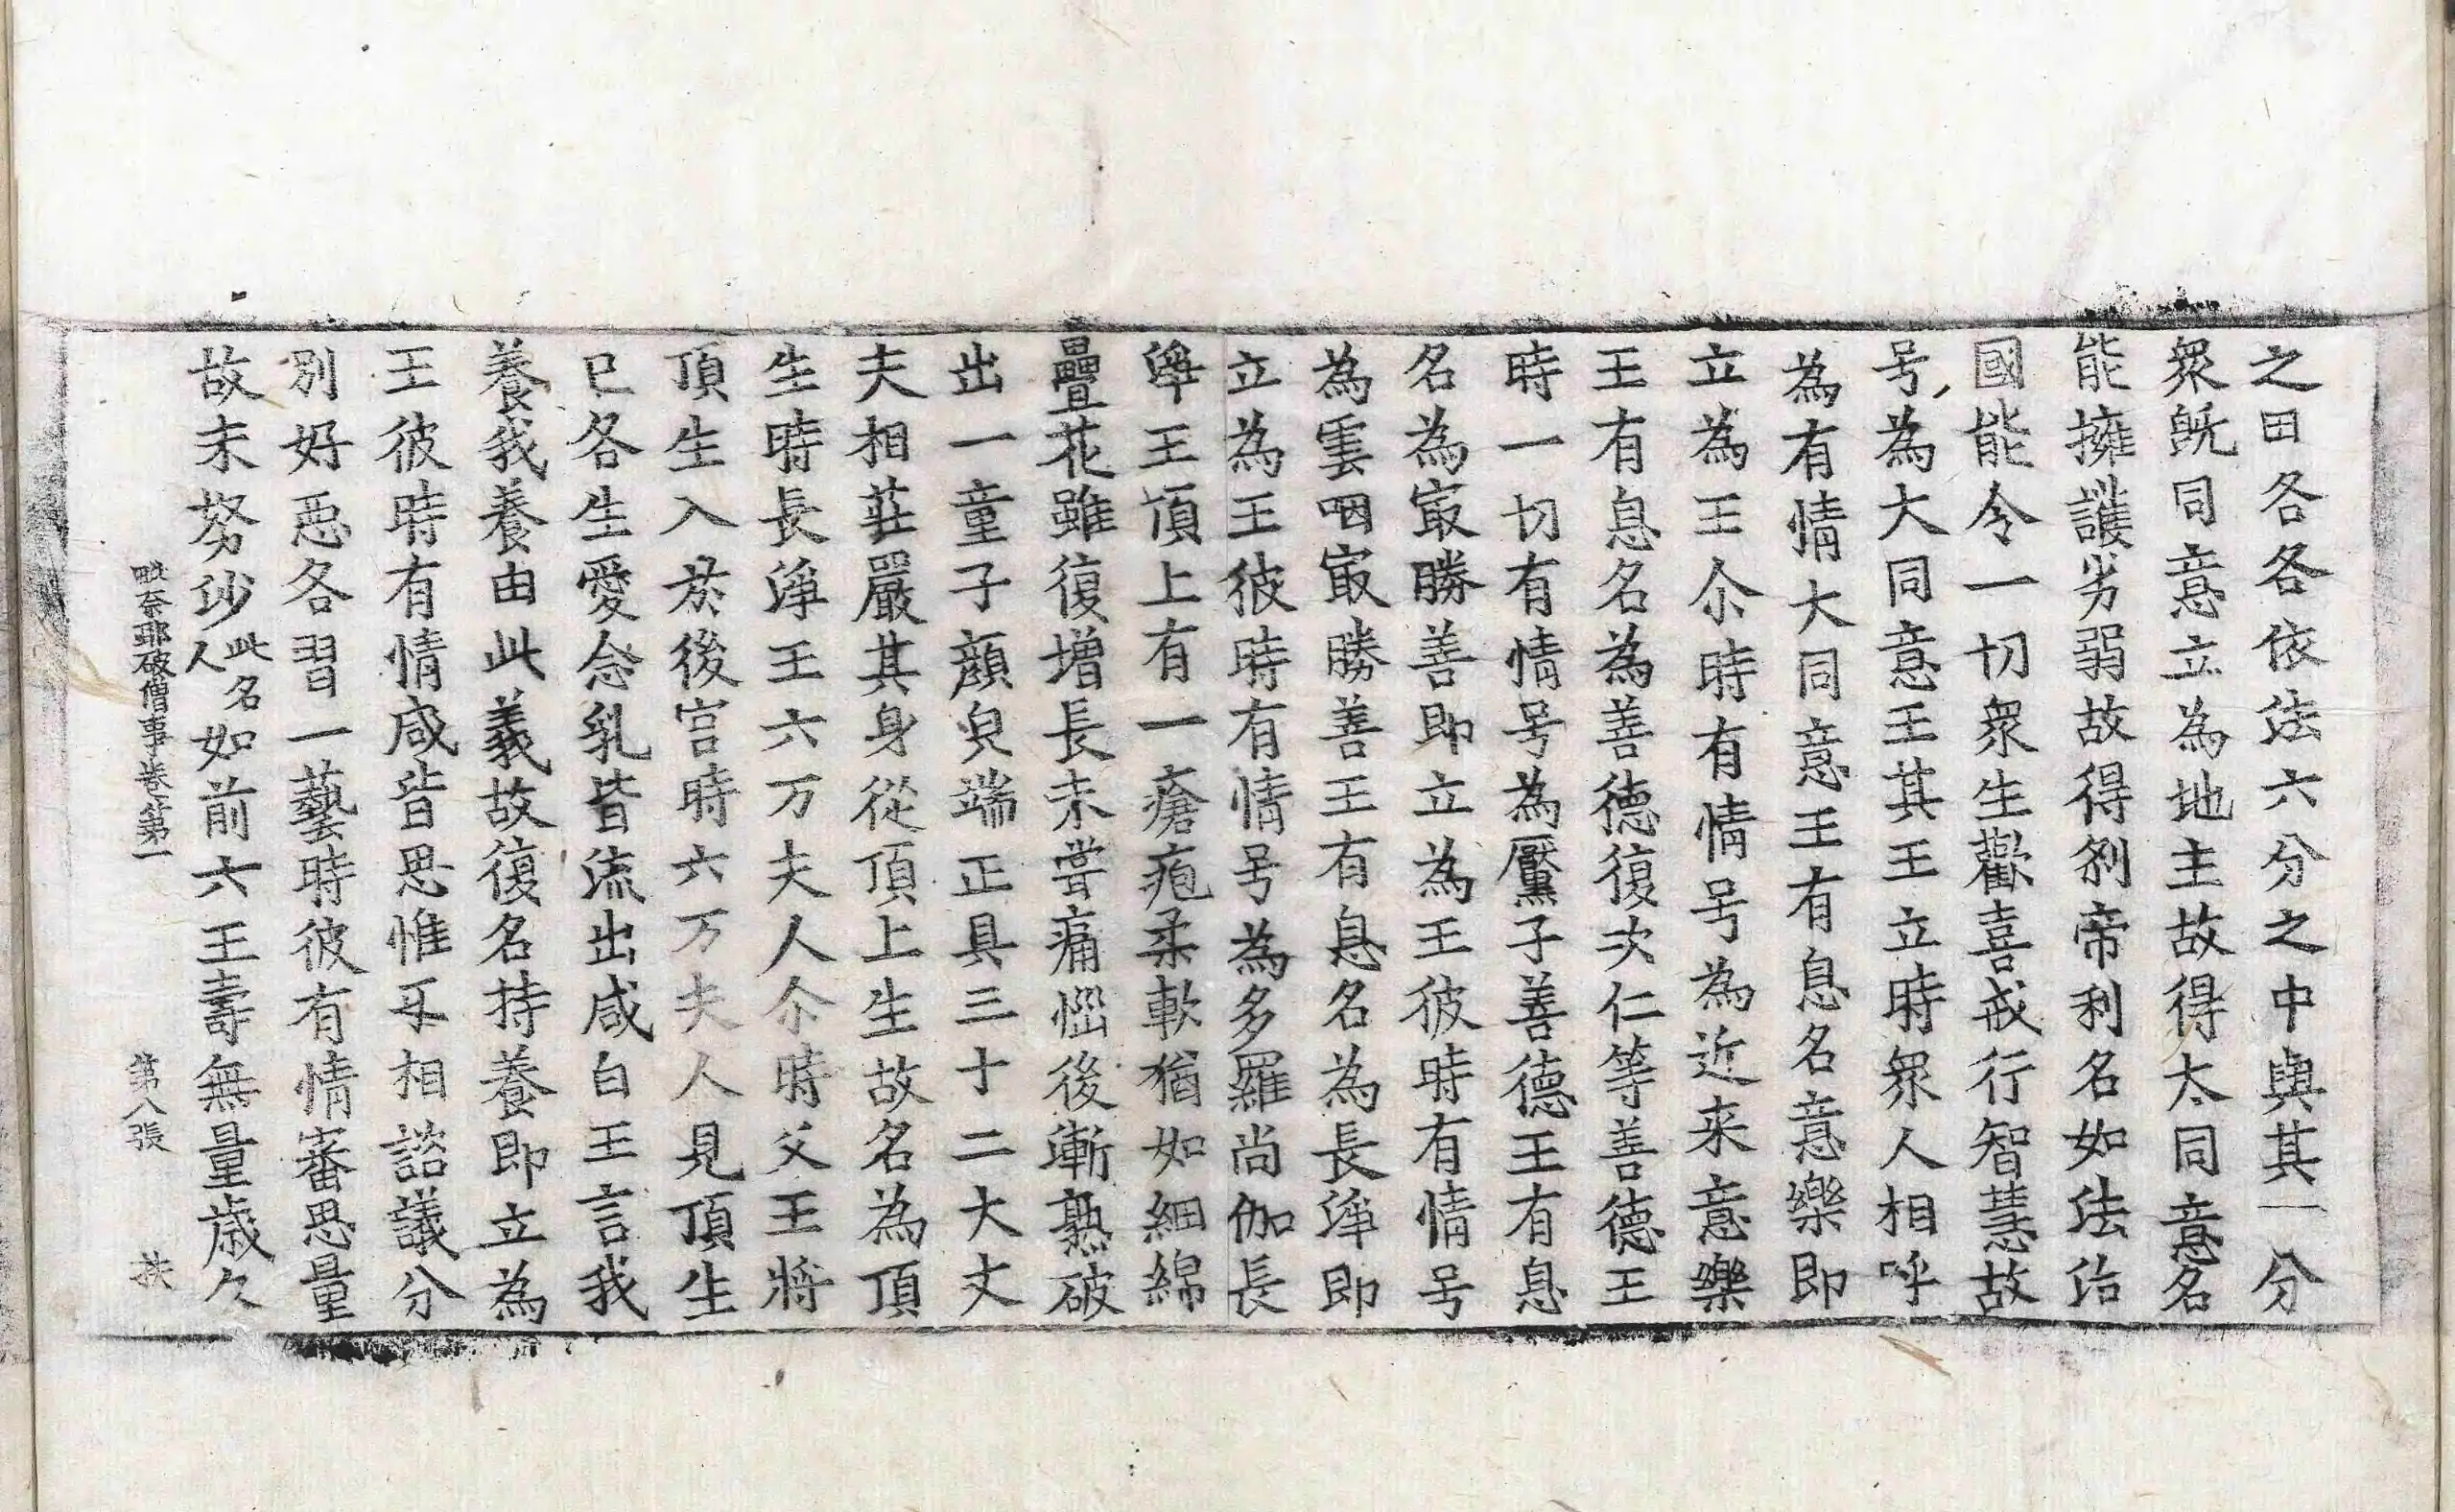 之田各各依法六分之中與其一分
衆旣同意立為地主故得大同意名
能擁護劣弱故得剎帝利名如法治
國能令一切衆生歡喜戒行智慧故
号為大同意王其王立時衆人相呼
為有情大同意王有息名意樂即
立為王尒時有情号為近来意樂
王有息名為善德復次仁等善德王
時一切有情号為黶子善德王有息
名為㝡勝善即立為王彼時有情号
為雲咽㝡勝善王有息名為長淨即
立為王彼時有情号為多羅尚伽長
淨王頂上有一瘡疱柔軟猶如細綿
疊花雖復增長未嘗痛惱後漸熟破
出一童子顔皃端正具三十二大丈
夫相莊嚴其身從頂上生故名為頂
生時長淨王六万夫人尒時父王將
頂生入於後宮時六万夫人見頂生
已各生愛念乳皆流出咸白王言我
養我養由此義故復名持養即立為
王彼時有情咸皆思惟互相諮議分
別好惡各習一藝時彼有情審思量
故末努沙此名人如前六王壽無量歲久
毗奈耶破僧事卷第一 第八張 扶